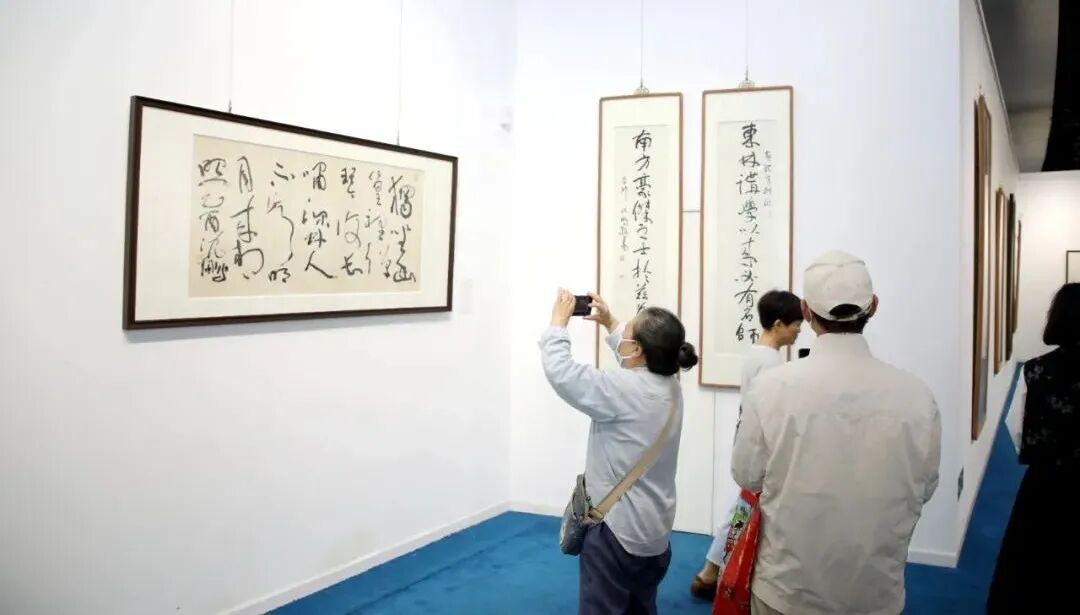 獨坐幽
篁裡彈
琴復長
嘯深林人
不知明
月來相
照乙酉沈鵬
東林講學以來必有名師
南方豪傑之士於茲